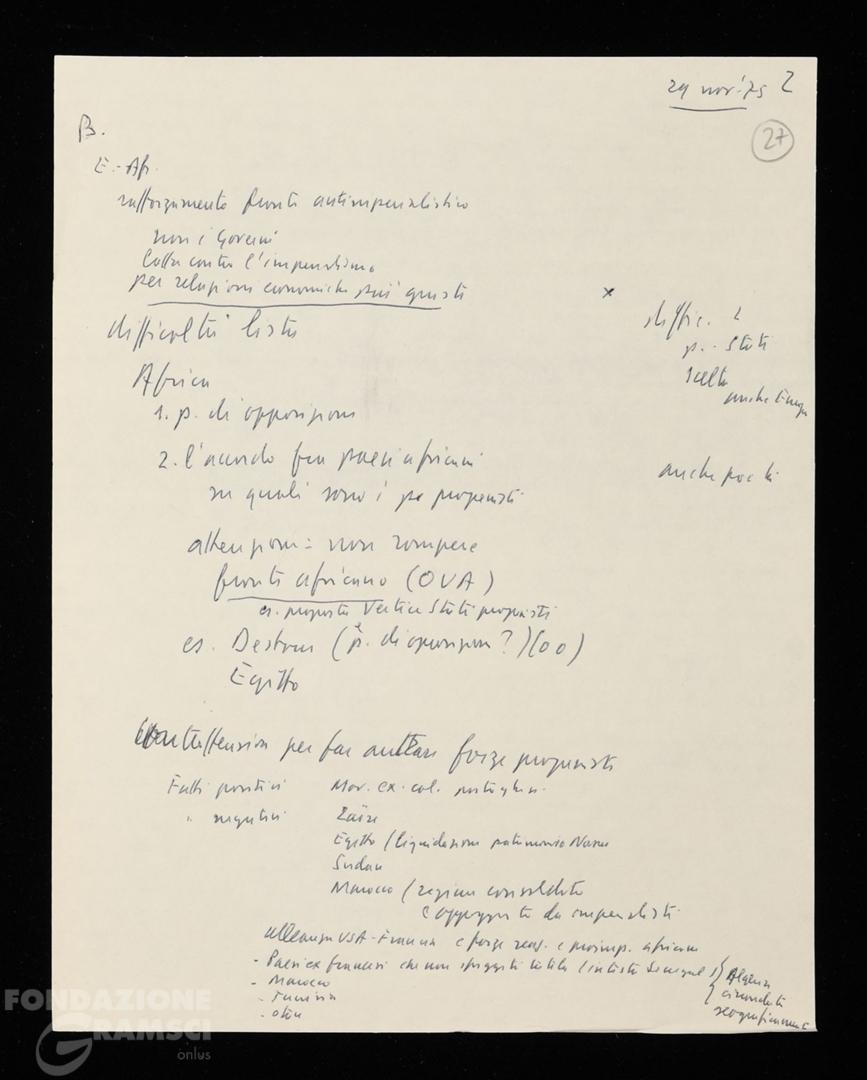 29 nov. '75 2
27
B.
E.-Afr.
rafforzamento fronte antimperialistico
non i Governi
lotta contro l'imperialismo
per relazioni economiche più giuste
x
difficoltà lista
diffic. 2
p. - Stati
scelta
anche Europa
Africa
1. p. di opposizione
2. l'accordo fra paesi africani
su quali sono i pa progressisti
anche pochi
attenzione = non rompere
fronte africano (OUA)
es. proposta Vertice Stati progressisti
es. Destour (è p. di opposizione?) (oo)
Egitto
Controffensiva per far arretrare forze progressiste
Fatti positivi Mov. ex-col. portoghesi
" negativi Zaïre
Egitto (liquidazione patrimonio Nasser
Sudan
Marocco (regime consolidato
e appoggiato da imperialisti
alleanza USA-Francia e forze reaz. e proimp. africane
- Paesi ex francesi che non sfuggiti tutela (in testa Senegal)
- Marocco
- Tunisia
Algeria
circondata
geograficamente
FONDAZIONE
GRAMSCI
onlus